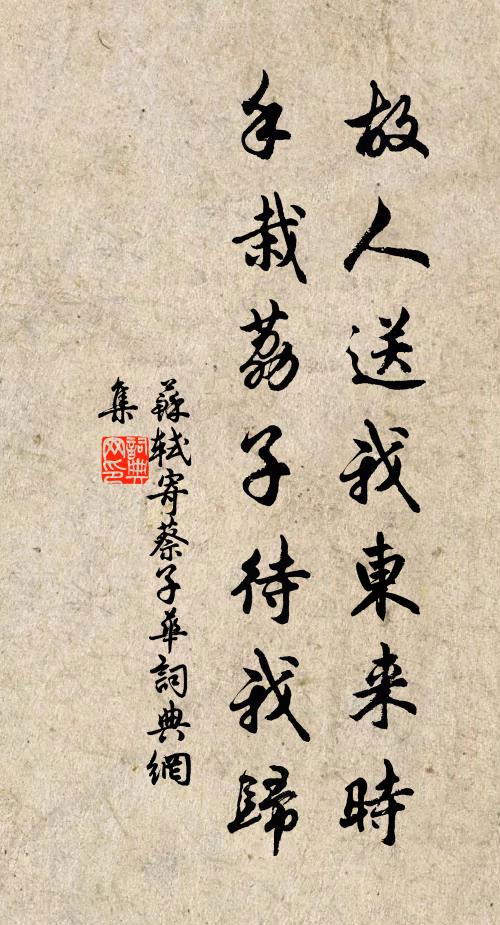 故人送我東来時
手栽荔子待我歸
蘇軾寄蔡子華詞典網
集
詞典
网印